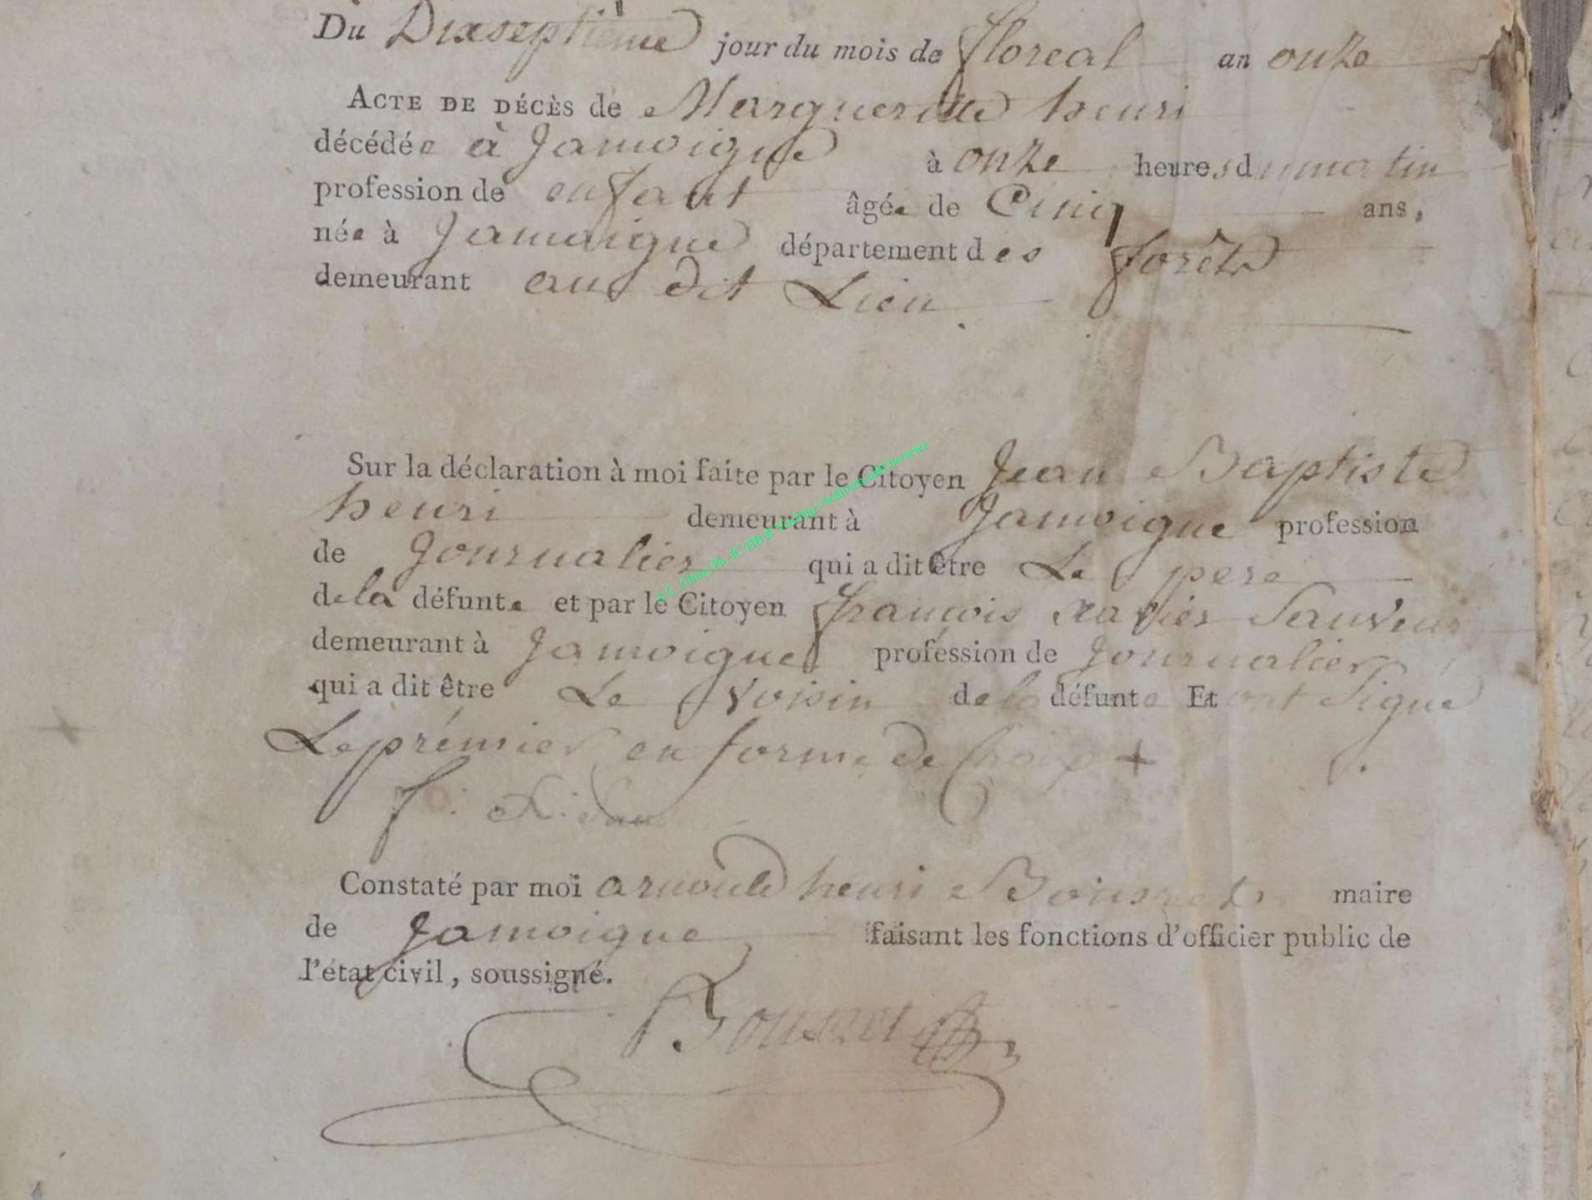 Du Dixseptième jour du mois de floreal an onze
ACTE DE DÉCÈS de Margueritte henri
décédée à Jamoigne à onze heures du matin
profession de enfant âgée de Cinq ans,
née à Jamoigne département des forêts
demeurant au dit Lieu.
Sur la déclaration à moi faite par le Citoyen Jean Baptiste
henri demeurant à Jamoigne profession
de Journalier qui a dit être Le pere
de la défunte et par le Citoyen françois xavier Sauveur
demeurant à Jamoigne profession de Journalier
qui a dit être Le Voisin de la défunte Et ont Signé
Le prémier en forme de Croix +
f: X:
Constaté par moi arnould henri maire
de Jamoigne faisant les fonctions d'officier public de
l'état civil, soussigné.